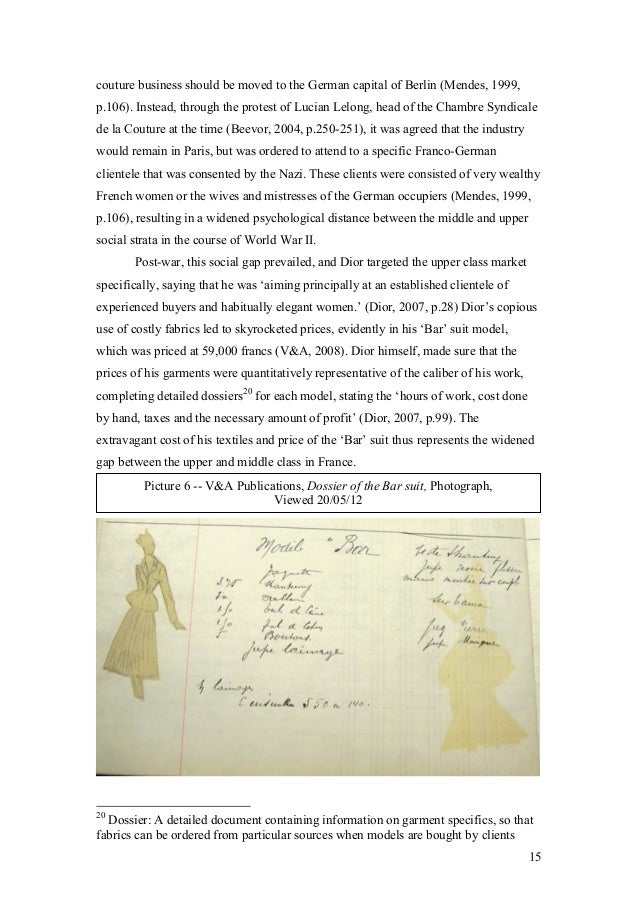 couture business should be moved to the German capital of Berlin (Mendes, 1999,
p.106). Instead, through the protest of Lucian Lelong, head of the Chambre Syndicale
de la Couture at the time (Beevor, 2004, p.250-251), it was agreed that the industry
would remain in Paris, but was ordered to attend to a specific Franco-German
clientele that was consented by the Nazi. These clients were consisted of very wealthy
French women or the wives and mistresses of the German occupiers (Mendes, 1999,
p.106), resulting in a widened psychological distance between the middle and upper
social strata in the course of World War II.
Post-war, this social gap prevailed, and Dior targeted the upper class market
specifically, saying that he was ‘aiming principally at an established clientele of
experienced buyers and habitually elegant women.’ (Dior, 2007, p.28) Dior’s copious
use of costly fabrics led to skyrocketed prices, evidently in his ‘Bar’ suit model,
which was priced at 59,000 francs (V&A, 2008). Dior himself, made sure that the
prices of his garments were quantitatively representative of the caliber of his work,
completing detailed dossiers20 for each model, stating the ‘hours of work, cost done
by hand, taxes and the necessary amount of profit’ (Dior, 2007, p.99). The
extravagant cost of his textiles and price of the ‘Bar’ suit thus represents the widened
gap between the upper and middle class in France.
Picture 6 -- V&A Publications, Dossier of the Bar suit, Photograph,
Viewed 20/05/12
Modèle "Bar
Jaquette
Shantung
Boutons
Jupe lainage
lainage
20 Dossier: A detailed document containing information on garment specifics, so that
fabrics can be ordered from particular sources when models are bought by clients
15